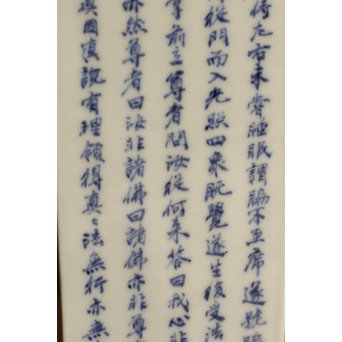 侍左右未常睡眠謂脇不至席遂號脇
從門而入光照四衆旣覺遂生後受法
尊前立尊者問汝從何來答曰我心非
亦然尊者曰汝非諸佛曰諸佛亦非尊
眞因眞說有理領得真々法無行亦無